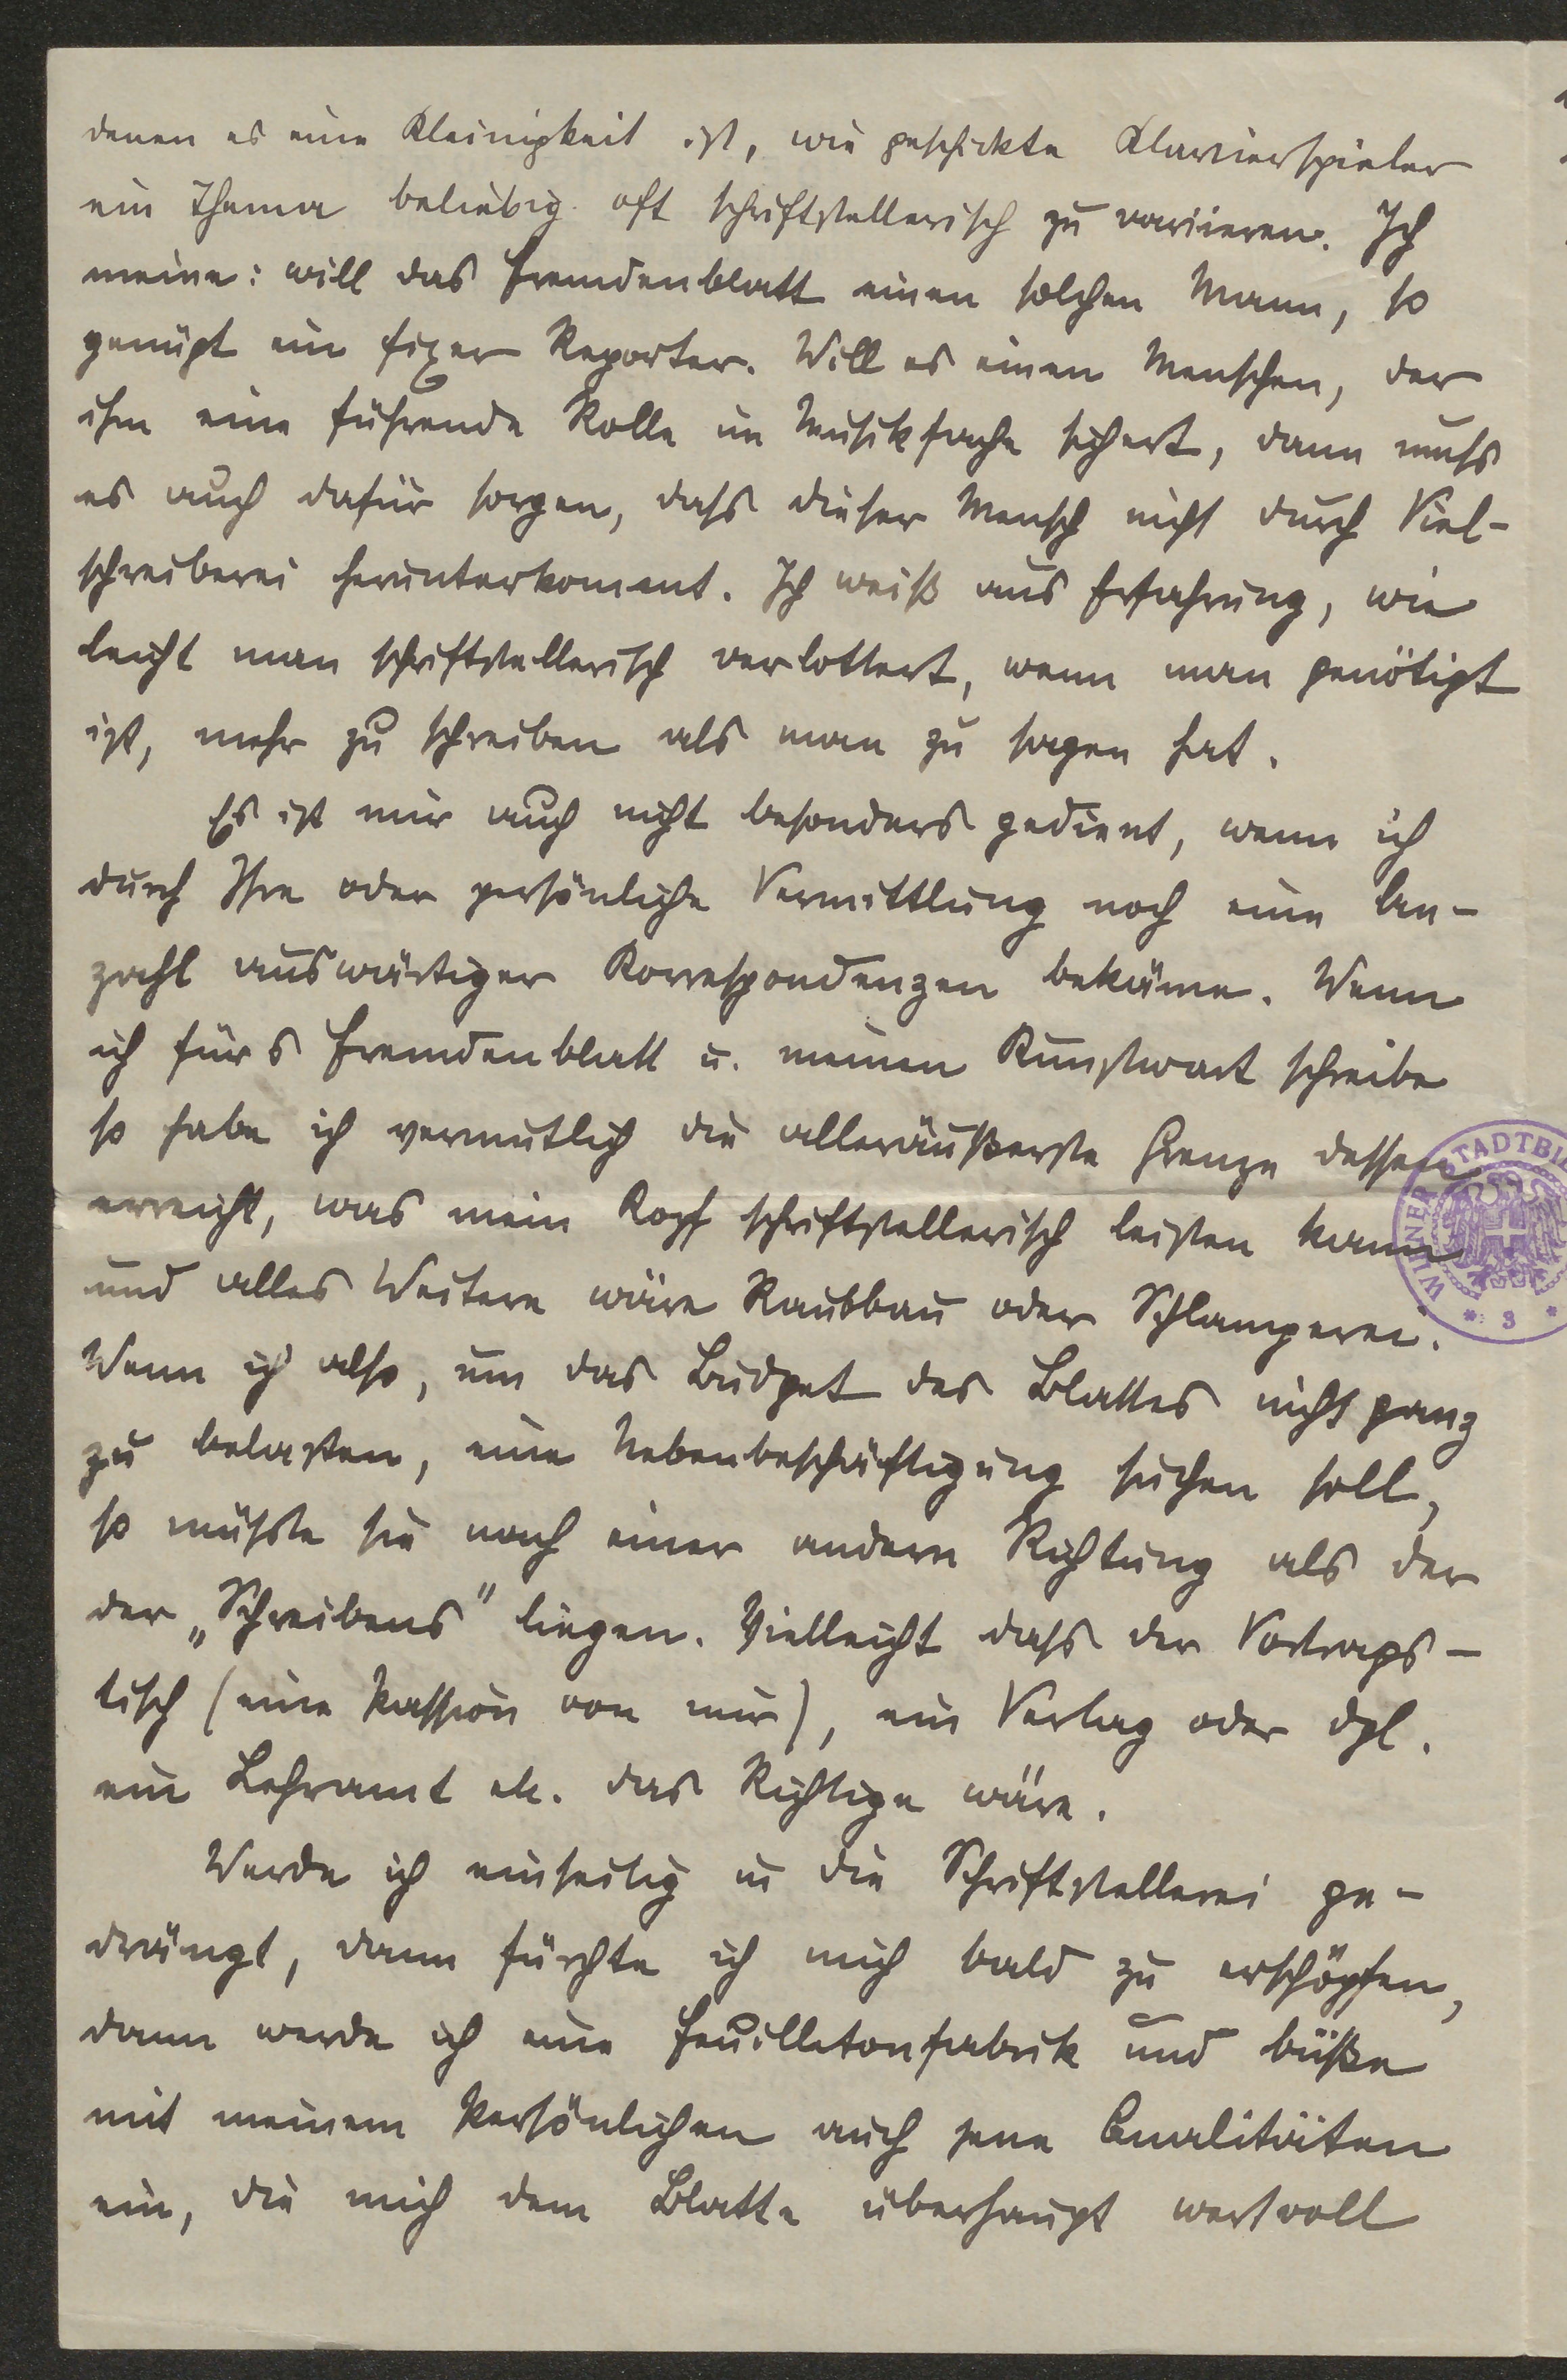 denen es eine Kleinigkeit ist, wie geschickte Klavierspieler
ein Thema beliebig oft schriftstellerisch zu variieren. Ich
meine: will das Fremdenblatt einen solchen Mann, so
genügt ein fixer Reporter. Will es einen Menschen, der
ihm eine führende Rolle im Musikfache sichert, dann muss
es auch dafür sorgen, dass dieser Mensch nicht durch Viel-
schreiberei herunterkommt. Ich weiß aus Erfahrung, wie
leicht man schriftstellerisch verlottert, wenn man genötigt
ist, mehr zu schreiben als man zu sagen hat.
Es ist mir auch nicht besonders gedient, wenn ich
durch Ihre oder persönliche Vermittlung noch eine An-
zahl auswärtiger Korrespondenzen bekäme. Wenn
ich fürs Fremdenblatt u. meinen Kunstwart schreibe
so habe ich vermutlich die alleräußerste Grenze dessen
erreicht, was mein Kopf schriftstellerisch leisten kann
und alles Weitere wäre Raubbau oder Schlamperei.
Wenn ich also, um das Budget des Blattes nicht ganz
zu belasten, eine Nebenbeschäftigung suchen soll,
so müsste sie nach einer andern Richtung als der
der „Schreibens" liegen. Vielleicht dass der Vortrags-
tisch (eine Passion von mir), ein Verlag oder dgl.
ein Lehramt etc. das Richtige wäre.
Werde ich einseitig in die Schriftstellerei ge-
drängt, dann fürchte ich mich bald zu erschöpfen,
dann werde ich eine Feuilletonfabrik und büße
mit meinem Persönlichen auch jene Qualitäten
ein, die mich dem Blatte überhaupt wertvoll
WIENER STADTBI
3